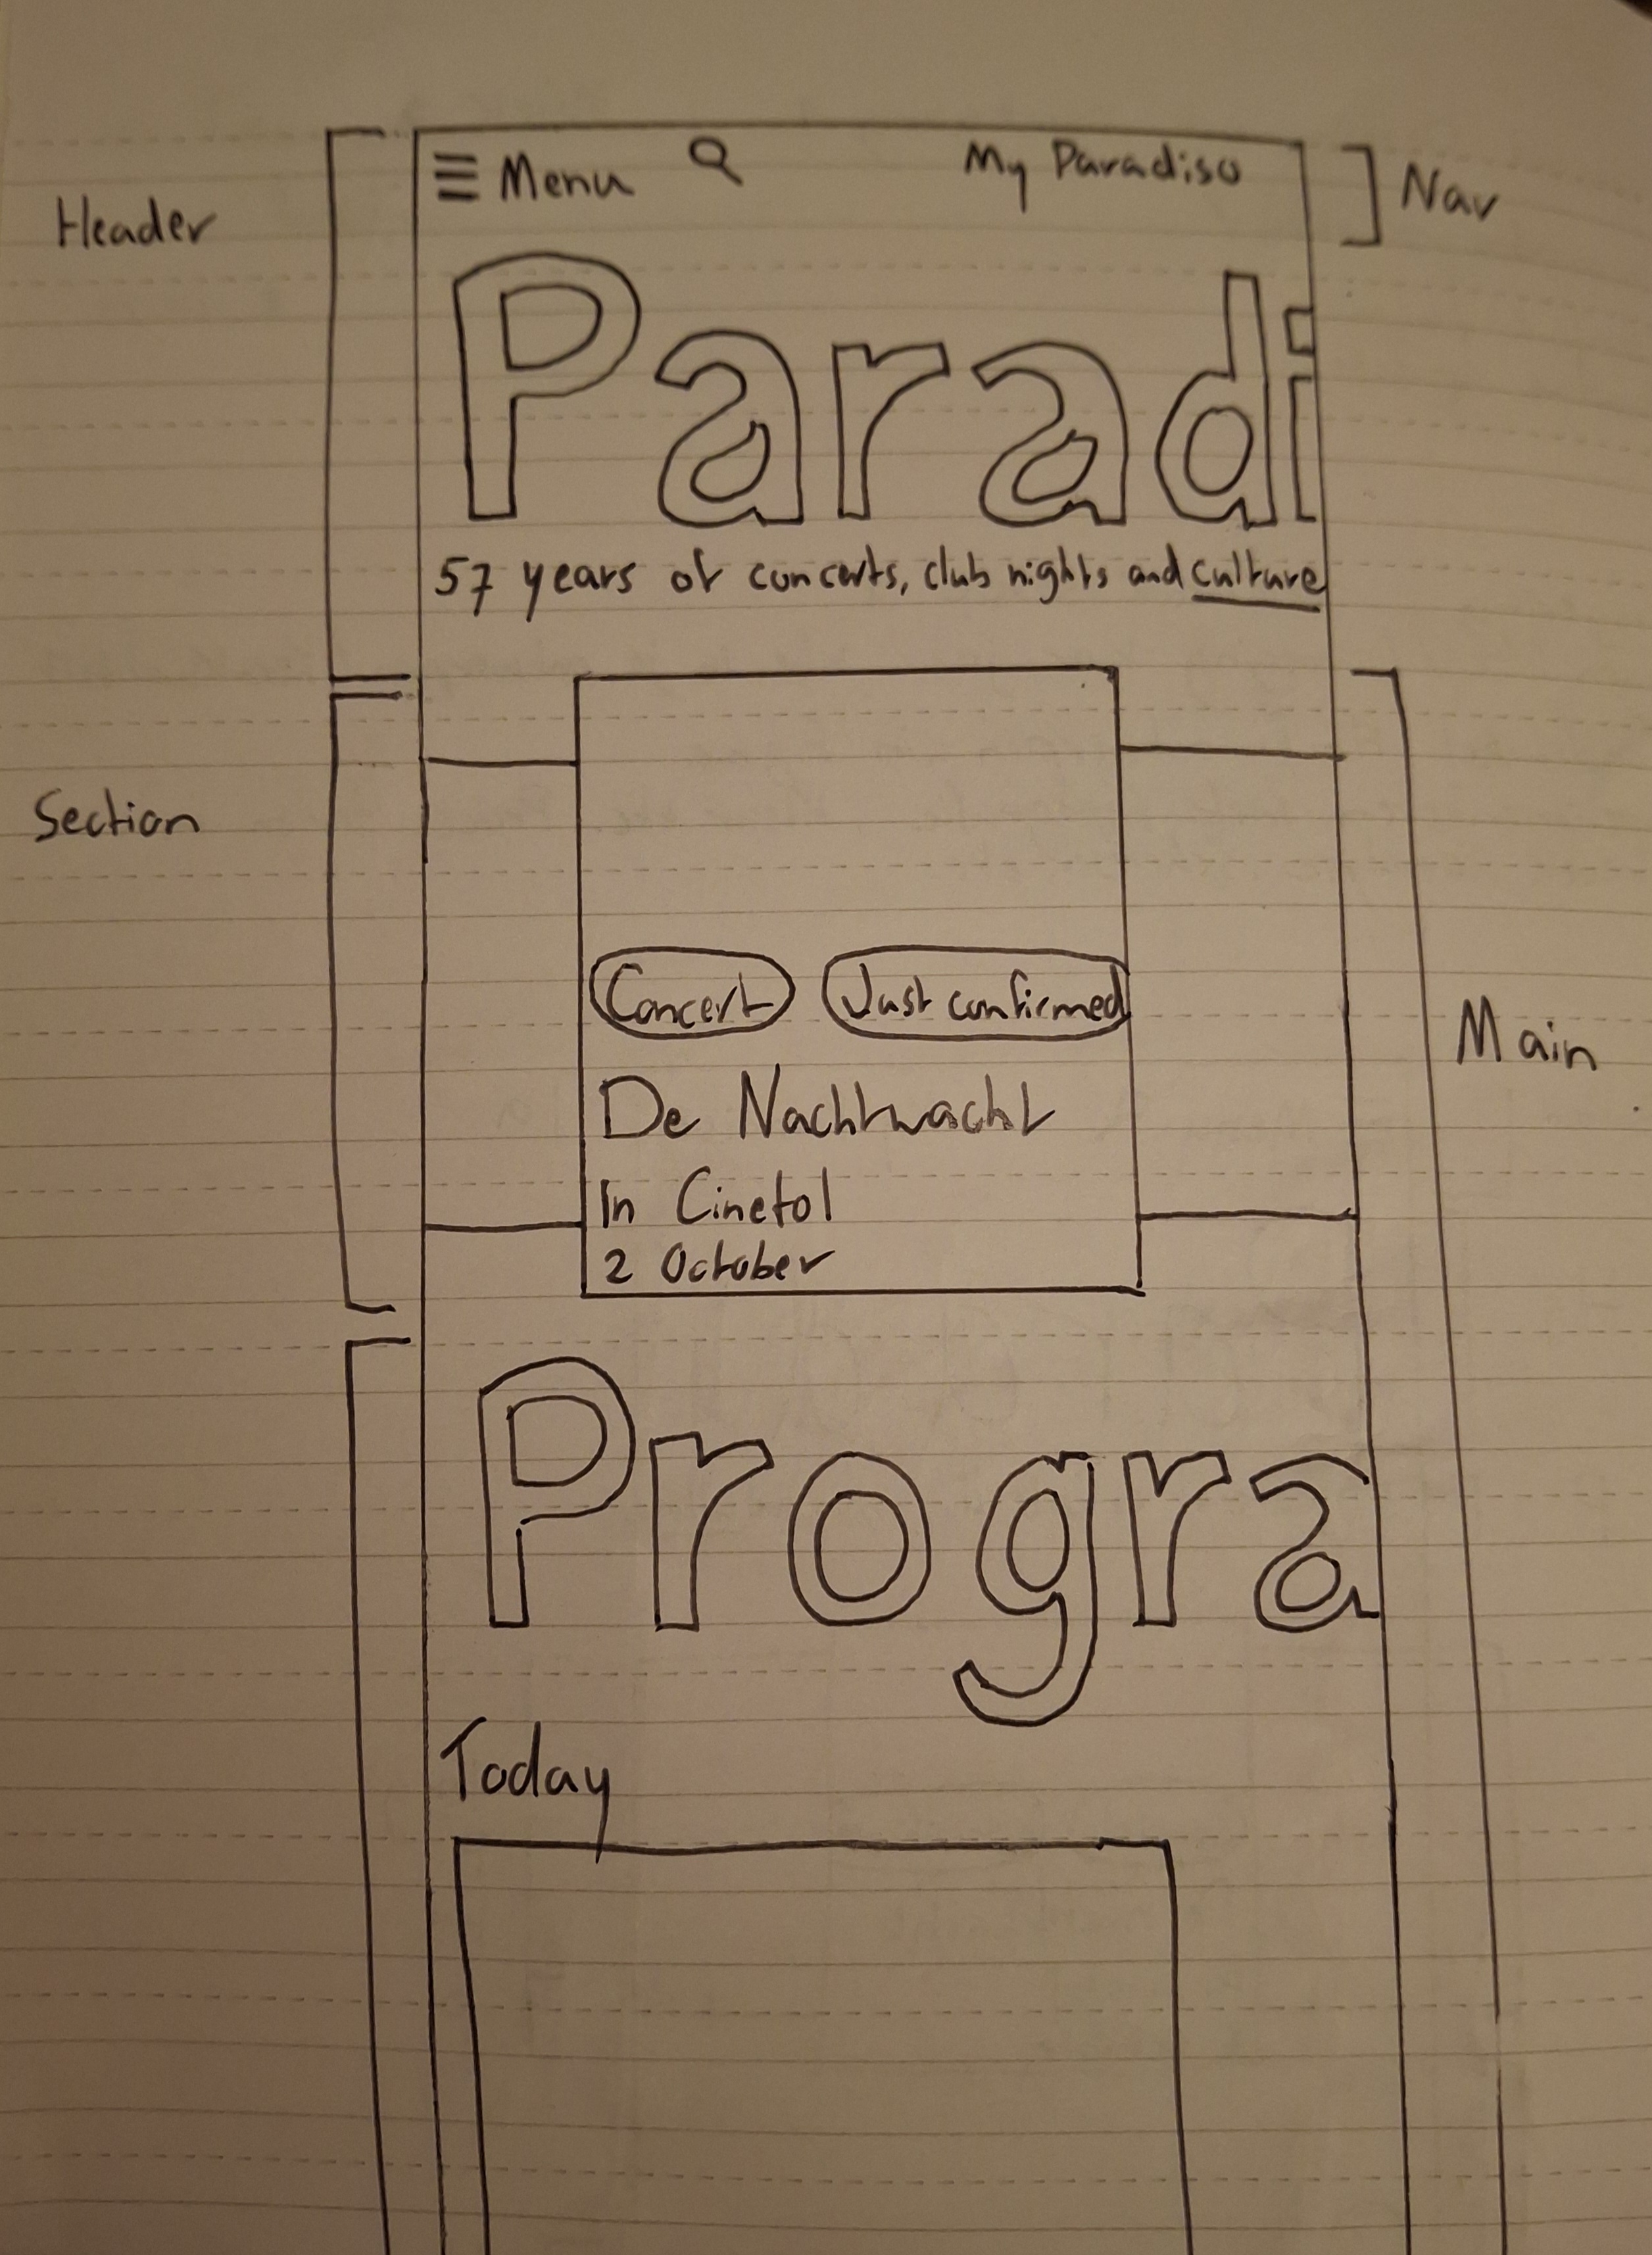 Header
☰ Menu My Paradiso
Nav
Paradi
57 years of concerts, club nights and culture
Section
Concert Just confirmed
Main
De Nachtwacht
In Cinetol
2 October
Progra
Today